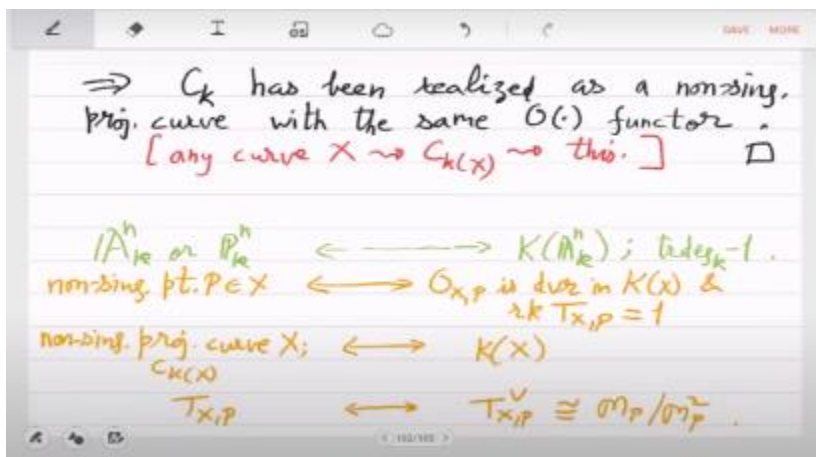 SAVE MORE
⇒ C_k has been realized as a non-sing.
proj. curve with the same O(·) functor.
[any curve X ⇝ C_{k(X)} ⇝ this.] □
𝔸^n_k or ℙ^n_k ⟷ K(𝔸^n_k); trdeg_k-1.
non-sing. pt. P ∈ X ⟷ O_{X,P} is dvr in K(X) &
rk T_{X,P} = 1
non-sing. proj. curve X; ⟷ K(X)
C_{K(X)}
T_{X,P} ⟷ T^∨_{X,P} ≅ m_P/m_P^2.
102/103